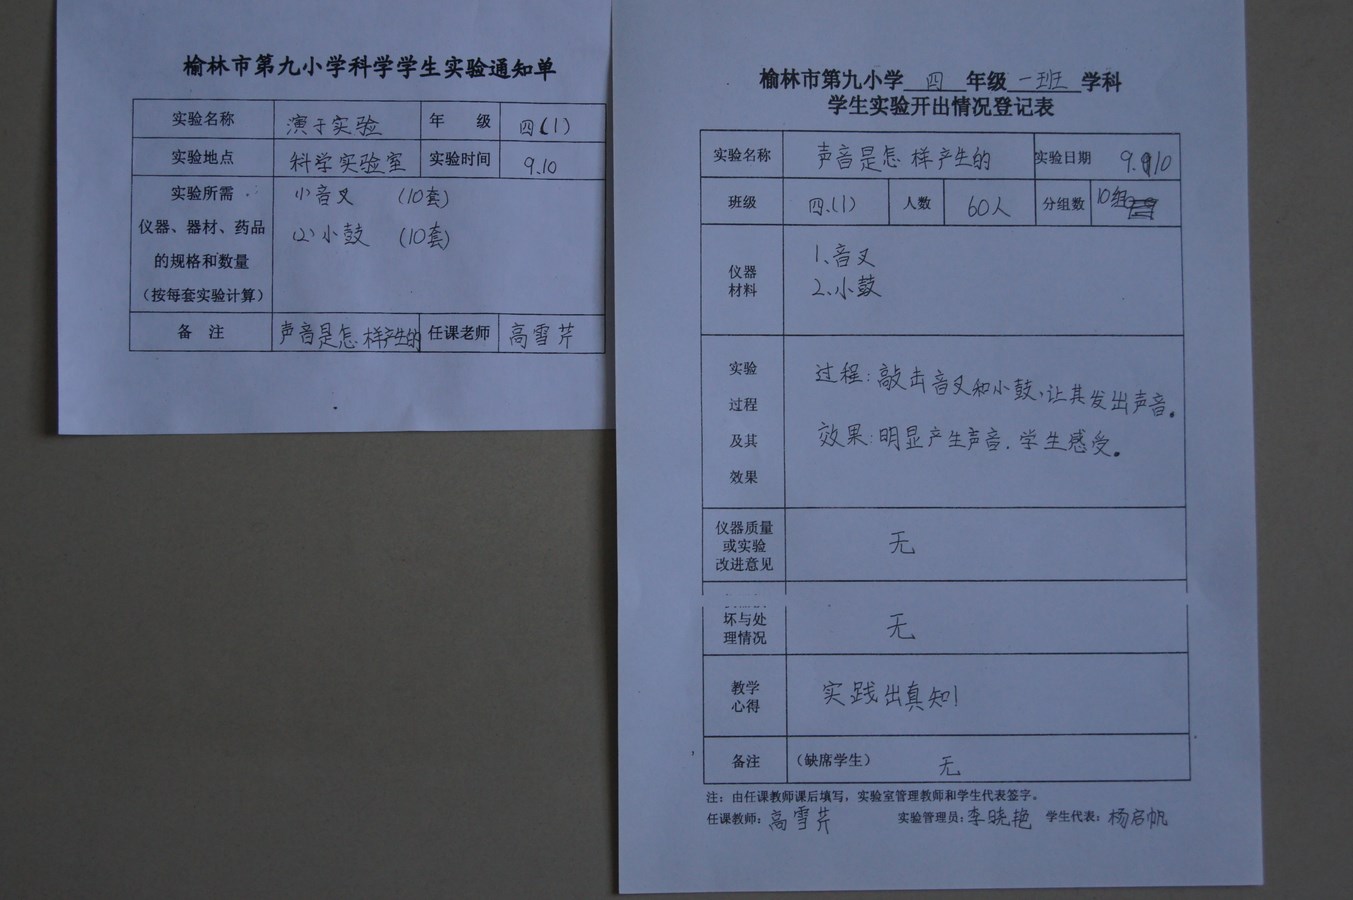 榆林市第九小学科学学生实验通知单
实验名称 演于实验 年 级 四(1)
实验地点 科学实验室 实验时间 9.10
实验所需
仪器、器材、药品
的规格和数量
（按每套实验计算）
(1)音叉 (10套)
(2)小鼓 (10套)
备 注 声音是怎样产生的 任课老师 高雪芹
榆林市第九小学 四 年级 一班 学科
学生实验开出情况登记表
实验名称 声音是怎样产生的 实验日期 9.10
班级 四.(1) 人数 60人 分组数 10组
仪器
材料
1、音叉
2、小鼓
实验
过程
及其
效果
过程:敲击音叉和小鼓、让其发出声音。
效果:明显产生声音.学生感受。
仪器质量
或实验
改进意见
无
坏与处
理情况
无
教学
心得
实践出真知!
备注 （缺席学生） 无
注：由任课教师课后填写，实验室管理教师和学生代表签字。
任课教师：高雪芹 实验管理员：李晓艳 学生代表：杨启帆